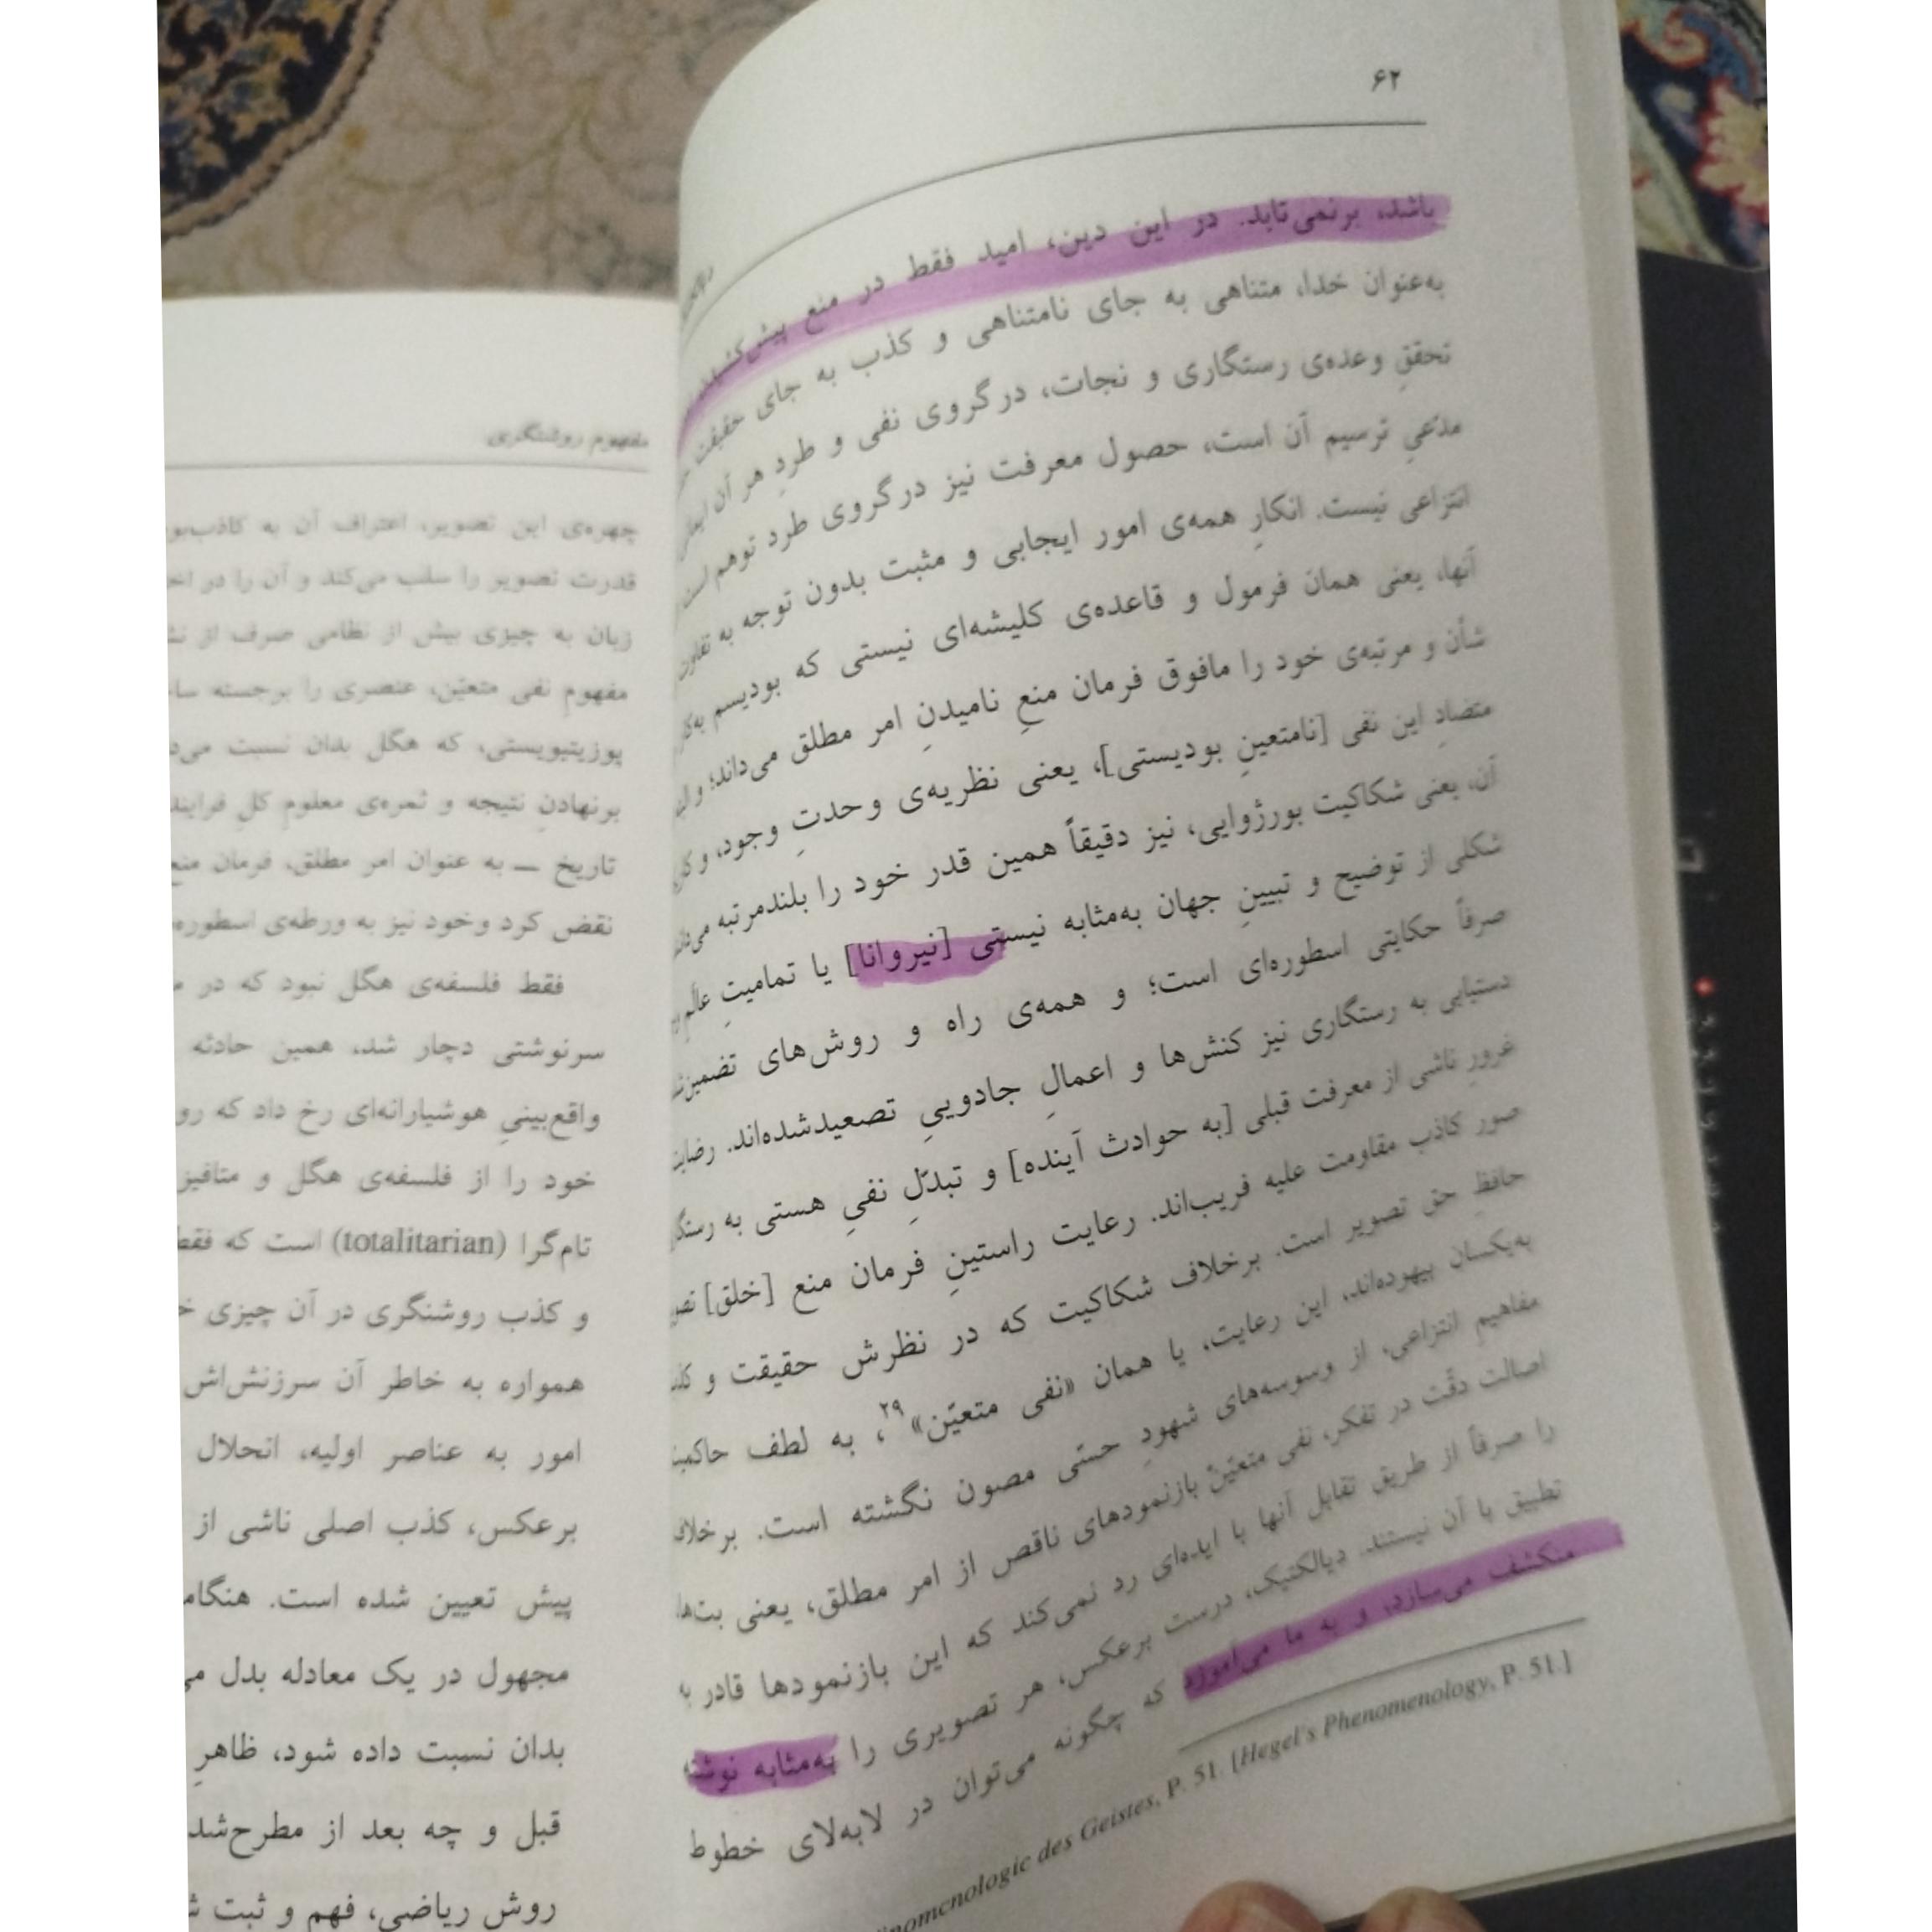 ۶۲
باشد، برنمی‌تابد. در این دین، امید فقط در منع پیش‌کشیدن
به‌عنوان خدا، متناهی به جای نامتناهی و کذب به جای حقیقت
تحققِ وعده‌ی رستگاری و نجات، درگروی نفی و طردِ هر آن
مدّعیِ ترسیم آن است، حصول معرفت نیز درگروی طرد توهم است.
انتزاعی نیست. انکارِ همه‌ی امور ایجابی و مثبت بدون توجه به تفاوت
آنها، یعنی همان فرمول و قاعده‌ی کلیشه‌ای نیستی که بودیسم
شأن و مرتبه‌ی خود را مافوق فرمان منعِ نامیدنِ امر مطلق می‌داند؛ و
متضادِ این نفی [نامتعینِ بودیستی]، یعنی نظریه‌ی وحدتِ وجود، و
آن، یعنی شکاکیت بورژوایی، نیز دقیقاً همین قدر خود را بلندمرتبه
شکلی از توضیح و تبیینِ جهان به‌مثابه نیستی [نیروانا] یا تمامیتِ عالَمِ
صرفاً حکایتی اسطوره‌ای است؛ و همه‌ی راه و روش‌های
دستیابی به رستگاری نیز کنش‌ها و اعمالِ جادوییِ تصعیدشده‌اند.
غرورِ ناشی از معرفت قبلی [به حوادث آینده] و تبدّلِ نفیِ هستی به
صور کاذب مقاومت علیه فریب‌اند. رعایت راستینِ فرمان منع [خلق]
حافظِ حق تصویر است. برخلاف شکاکیت که در نظرش حقیقت و
به‌یکسان بیهوده‌اند، این رعایت، یا همان «نفی متعیّن»۲۹، به لطف
مفاهیمِ انتزاعی، از وسوسه‌های شهودِ حسّی مصون نگشته است.
اصالت دقّت در تفکر، نفی متعیّنْ بازنمودهای ناقص از امر مطلق، یعنی بت‌ها
را صرفاً از طریق تقابل آنها با ایده‌ای رد نمی‌کند که این بازنمودها قادر به
تطبیق با آن نیستند. دیالکتیک، درست برعکس، هر تصویری را به‌مثابه
منکشف می‌سازد، و به ما می‌آموزد که چگونه می‌توان در لابه‌لای خطوط
des Geistes, P. 51. [Hegel's Phenomenology, P. 51.]
مفهوم روشنگری
چهره‌ی این تصویر، اعتراف آن به
قدرت تصویر را سلب می‌کند و آن را در
زبان به چیزی بیش از نظامی صرف از
مفهومِ نفی متعیّن، عنصری را برجسته
پوزیتیویستی، که هگل بدان نسبت
برنهادنِ نتیجه و ثمره‌ی معلومِ کلِ
تاریخ — به عنوان امر مطلق، فرمان منع
نقض کرد و خود نیز به ورطه‌ی
فقط فلسفه‌ی هگل نبود که در
سرنوشتی دچار شد، همین حادثه
واقع‌بینیِ هوشیارانه‌ای رخ داد که
خود را از فلسفه‌ی هگل و
تام‌گرا (totalitarian) است که
و کذب روشنگری در آن چیزی
همواره به خاطر آن سرزنش‌اش
امور به عناصر اولیه، انحلال
برعکس، کذب اصلی ناشی از
پیش تعیین شده است.
مجهول در یک معادله بدل
بدان نسبت داده شود، ظاهرِ
قبل و چه بعد از
روش ریاضی، فهم و ثبت